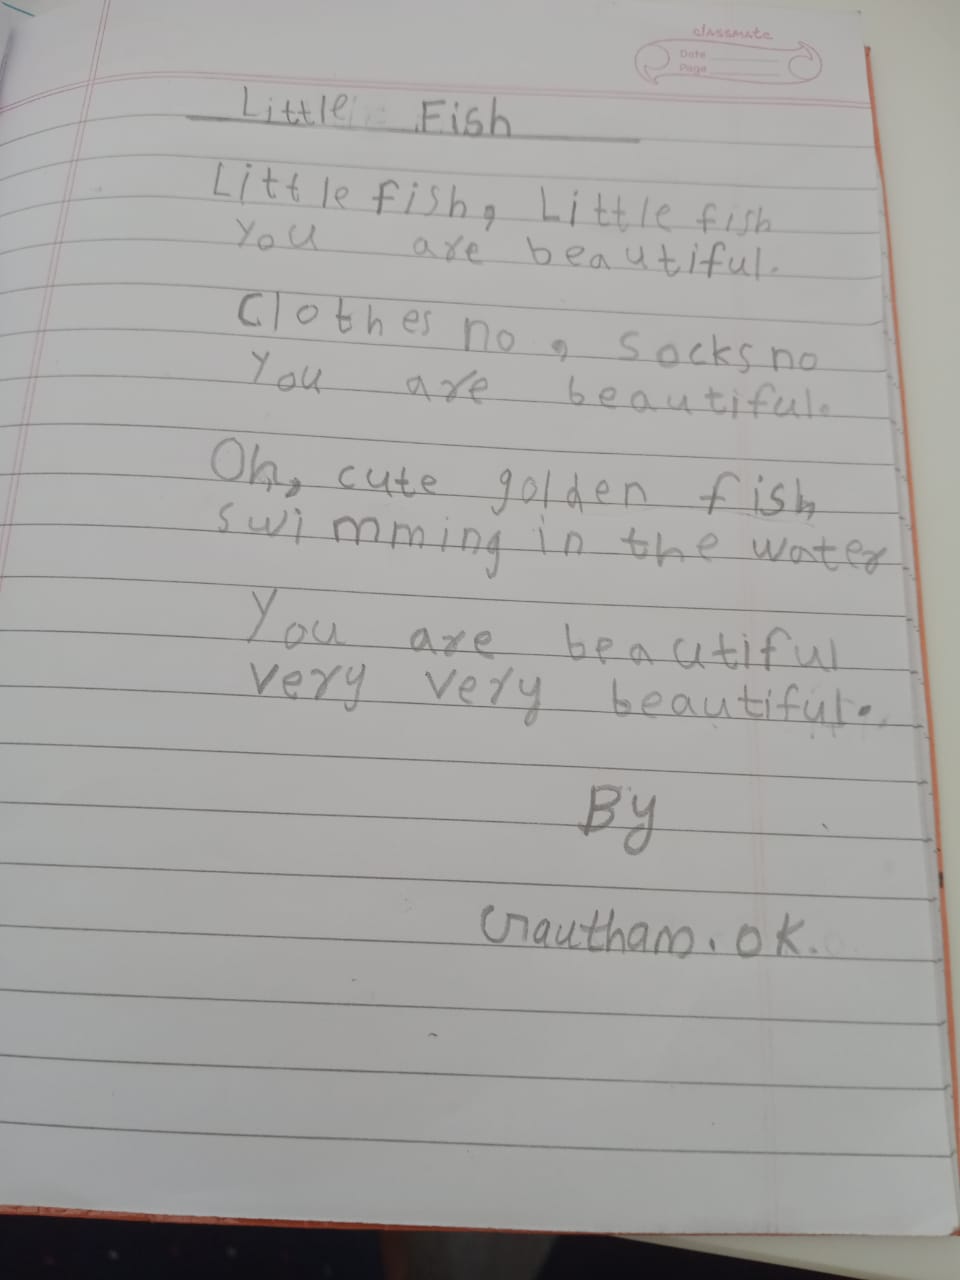 classmate
Date
Page
Little Fish
Little fish, Little fish
You are beautiful.
Clothes no, Socks no
You are beautiful.
Oh, cute golden fish
swimming in the water
You are beautiful
very very beautiful.
By
Gautham. O K.